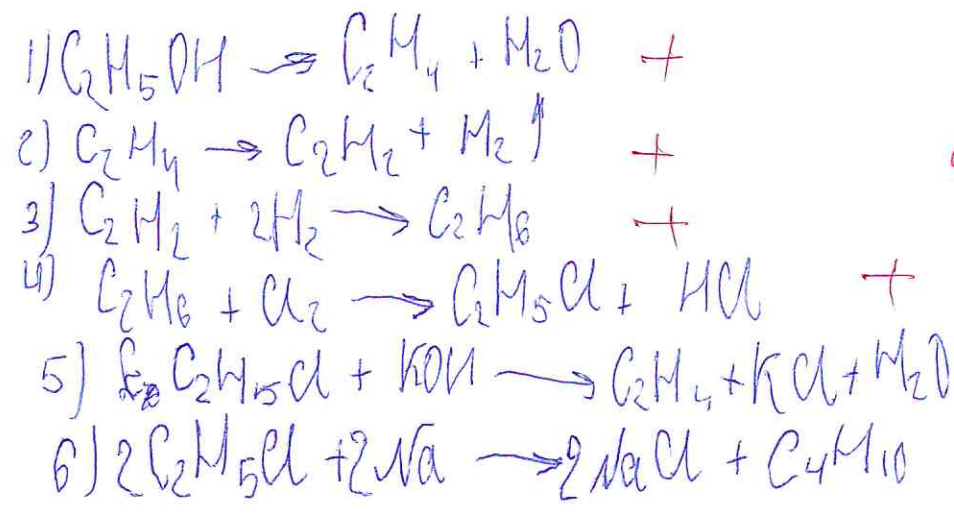 1) C₂H₅OH → C₂H₄ + H₂O +
2) C₂H₄ → C₂H₂ + H₂↑ +
3) C₂H₂ + 2H₂ → C₂H₆ +
4) C₂H₆ + Cl₂ → C₂H₅Cl + HCl +
5) C₂H₅Cl + KOH → C₂H₄ + KCl + H₂O
6) 2C₂H₅Cl + 2Na → 2NaCl + C₄H₁₀